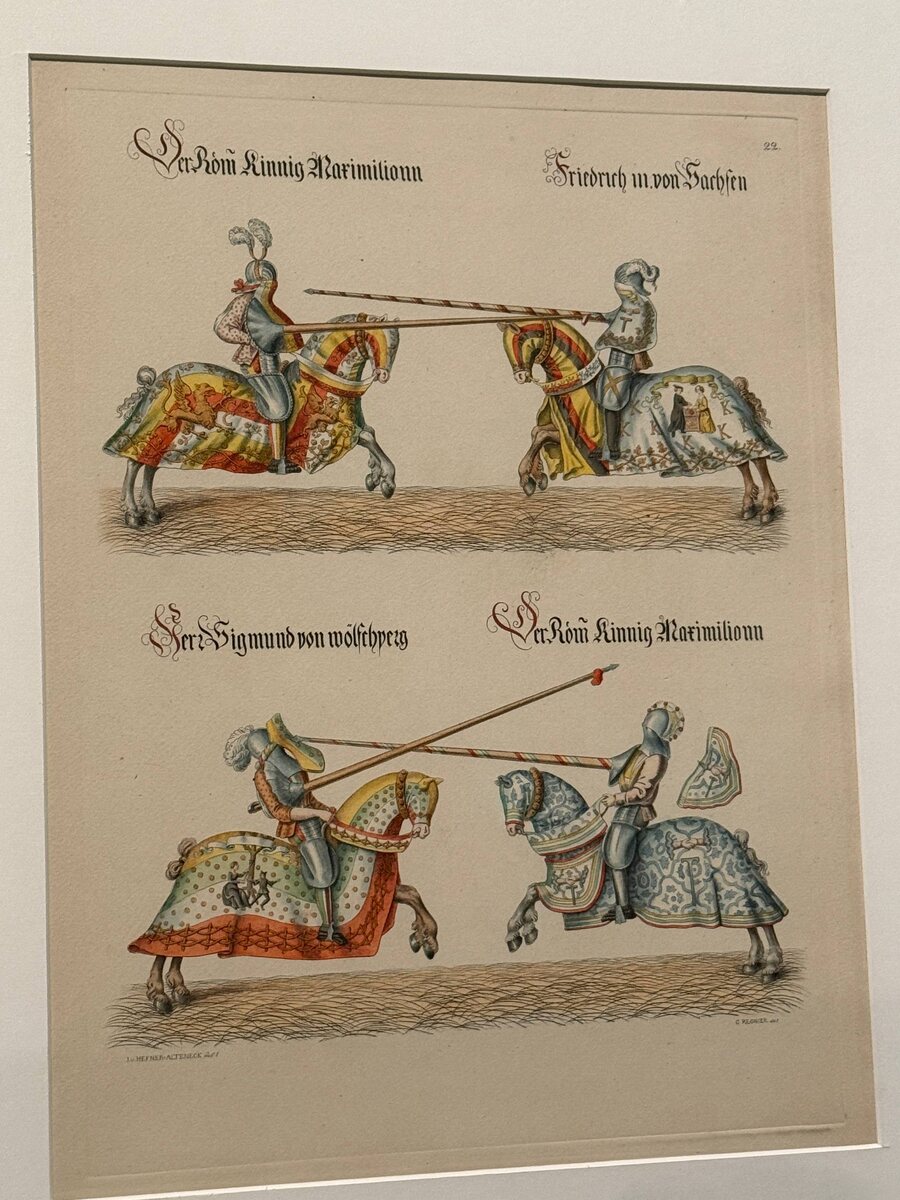 22.
Der Röm̃ Kinnig Maximilionn
Friedrich m. von Sachsen
Herr Sigmund von wölschperg
Der Röm̃ Kinnig Maximilionn
K K
K K
T
J. v. HEFNER-ALTENECK
C. REGNIER